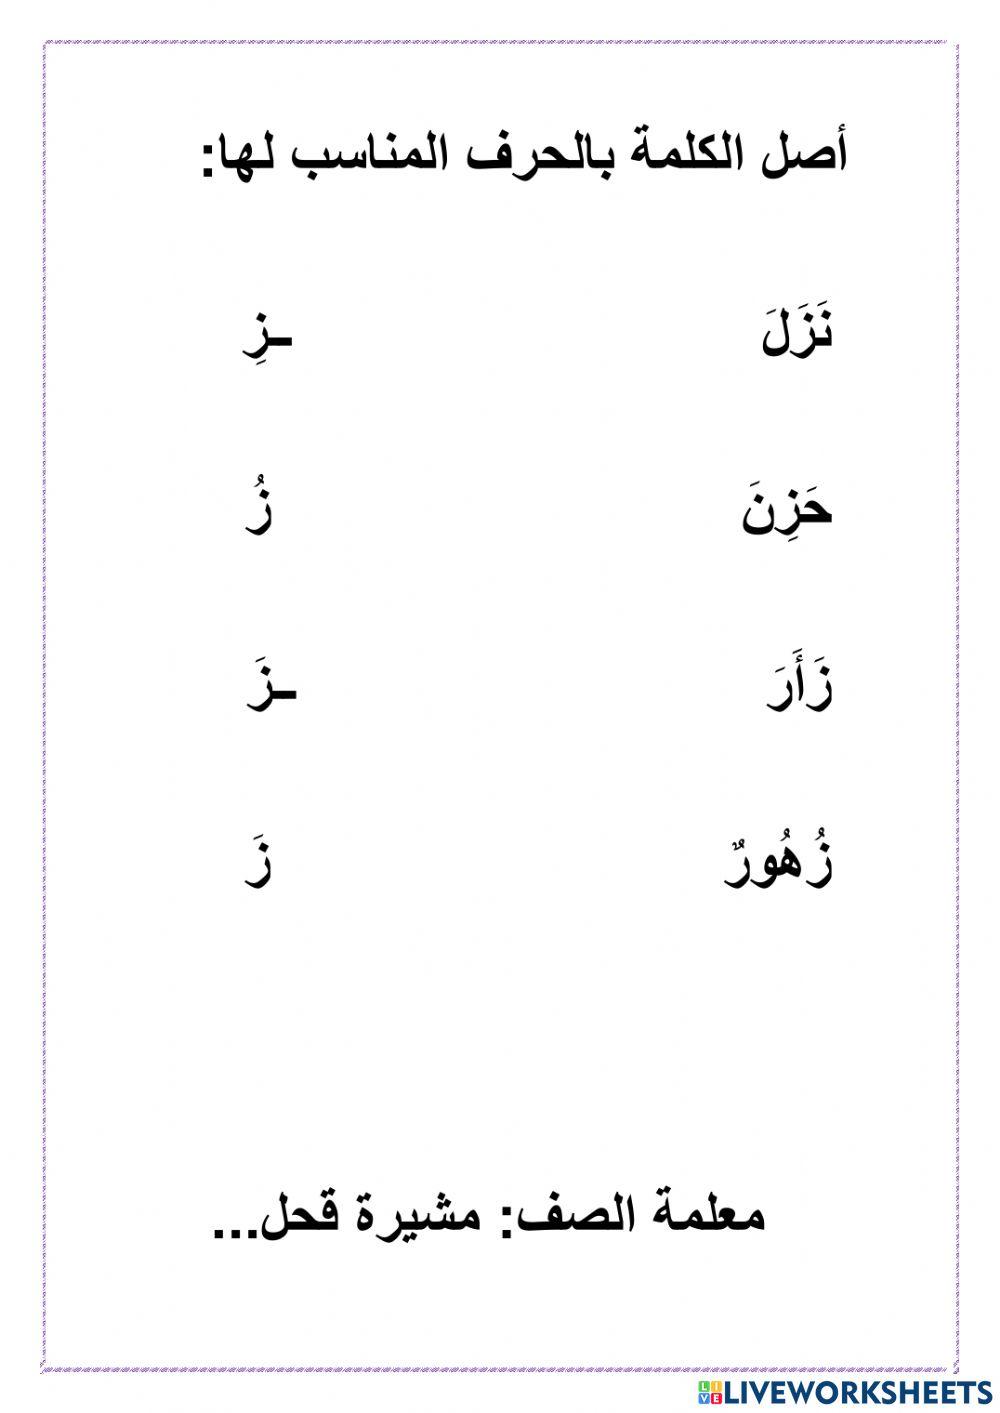 أصل الكلمة بالحرف المناسب لها:
نَزَلَ ـزِ
حَزِنَ زُ
زَأَرَ ـزَ
زُهُورٌ زَ
معلمة الصف: مشيرة قحل...
LIVEWORKSHEETS